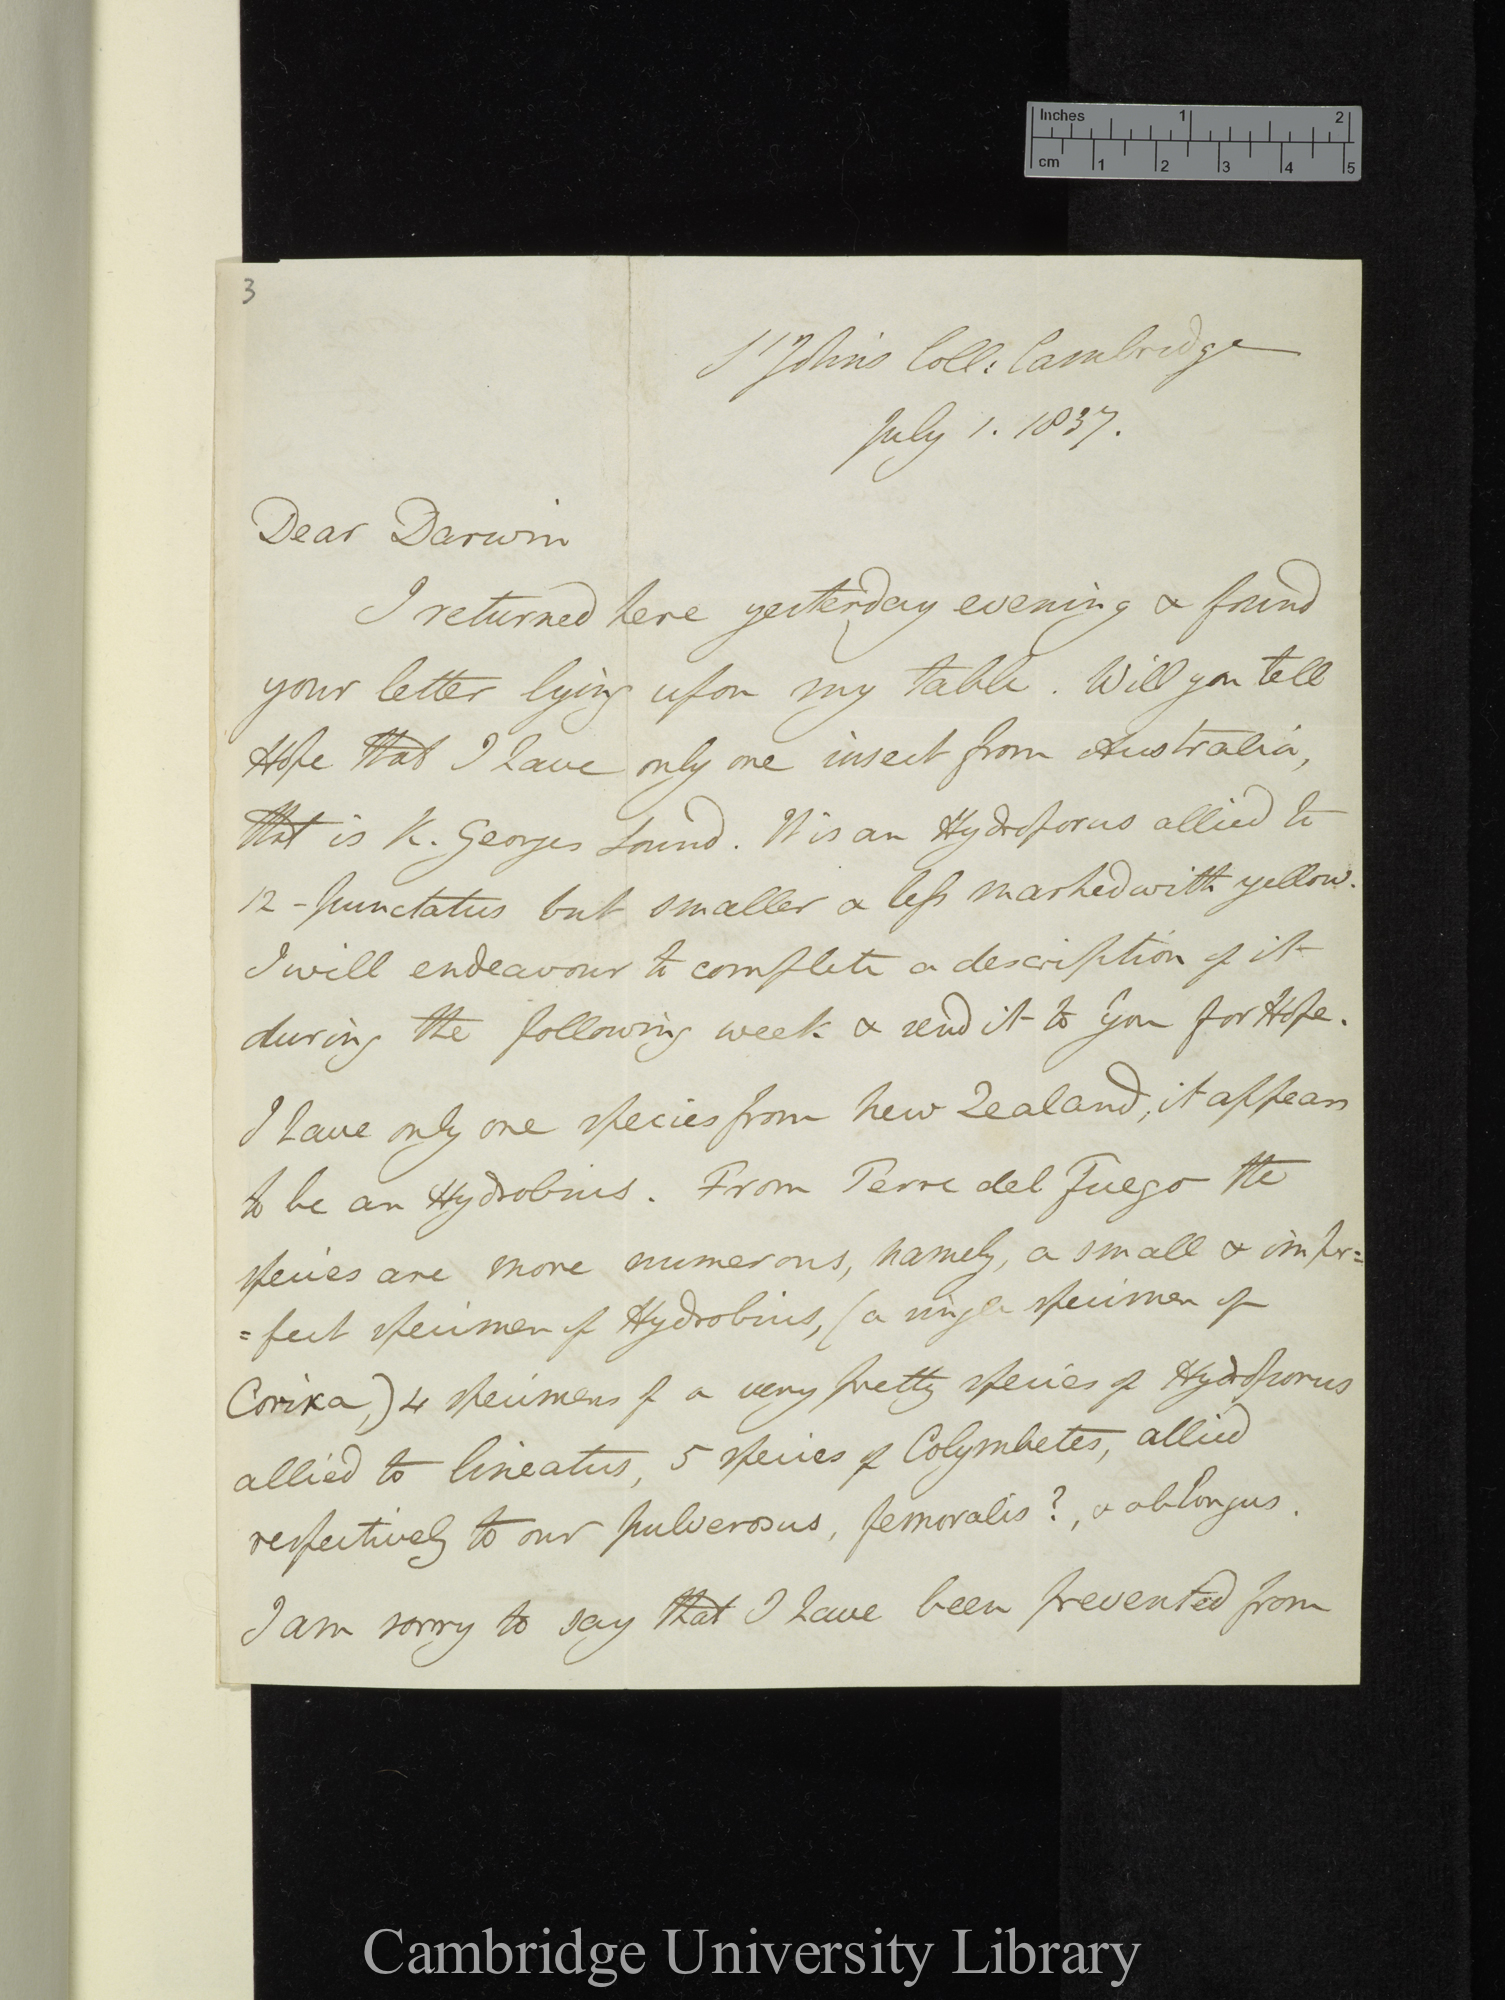 Inches 1 2
cm 1 2 3 4 5
3
St Johns Coll: Cambridge
July 1. 1837.
Dear Darwin
I returned here yesterday evening & found
your letter lying upon my table. Will you tell
Hope that I have only one insect from Australia,
that is K. Georges Sound. It is an Hydroporus allied to
12-punctatus but smaller & less marked with yellow.
I will endeavour to complete a description of it
during the following week & send it to you for Hope.
I have only one species from New Zealand, it appears
to be an Hydrobius. From Terra del Fuego the
species are more numerous, namely, a small & imper=
=fect specimen of Hydrobius, (a single specimen of
Corixa,) 4 specimens of a very pretty species of Hydroporus
allied to lineatus, 5 species of Colymbetes, allied
respectively to our pulverosus, femoralis?, & oblongus.
I am sorry to say that I have been prevented from
Cambridge University Library